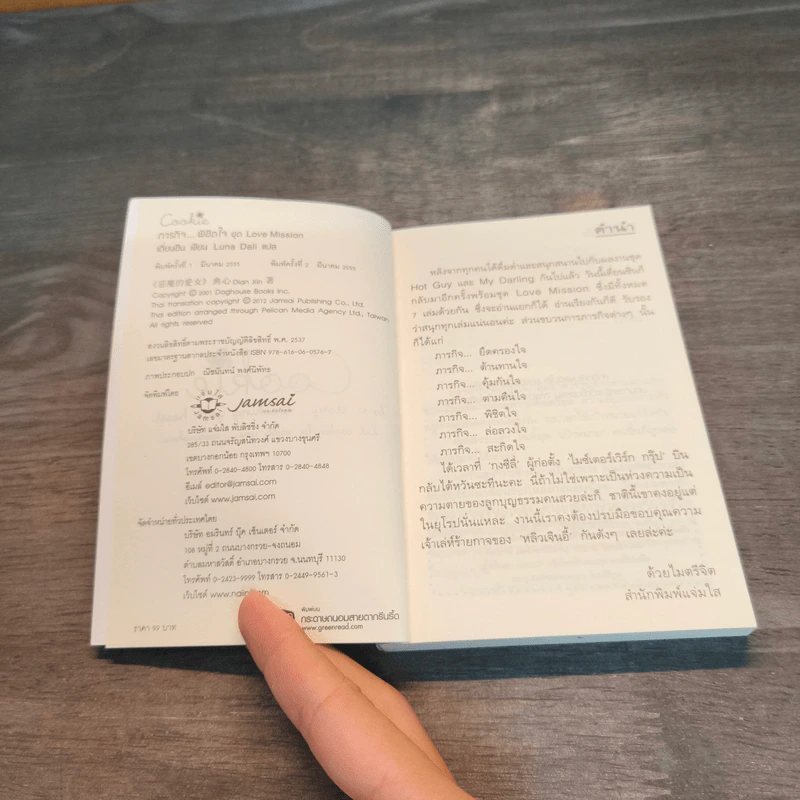 Cookie
ภารกิจ... พิชิตใจ ชุด Love Mission
เตี่ยนซิน เขียน Luna Dali แปล
พิมพ์ครั้งที่ 1 มีนาคม 2555 พิมพ์ครั้งที่ 2 มีนาคม 2555
典心 Dian Xin 著
Copyright © 2001 Doghouse Books Inc.
Thai translation copyright © 2012 Jamsai Publishing Co., Ltd.
This edition arranged through Pelican Media Agency Ltd., Taiwan
All rights reserved
สงวนลิขสิทธิ์ตามพระราชบัญญัติลิขสิทธิ์ พ.ศ. 2537
เลขมาตรฐานสากลประจำหนังสือ ISBN 978-616-06-0576-7
ภาพประกอบปก ณิชนันทน์ พงศ์นิพัทธ
จัดพิมพ์โดย
jamsai
บริษัท แจ่มใส พับลิชชิ่ง จำกัด
285/33 ถนนจรัญสนิทวงศ์ แขวงบางขุนศรี
เขตบางกอกน้อย กรุงเทพฯ 10700
โทรศัพท์ 0-2840-4800 โทรสาร 0-2840-4848
อีเมล์ editor@jamsai.com
เว็บไซต์ www.jamsai.com
จัดจำหน่ายทั่วประเทศโดย
บริษัท อมรินทร์ บุ๊ค เซ็นเตอร์ จำกัด
108 หมู่ที่ 2 ถนนบางกรวย-จงถนอม
ตำบลมหาสวัสดิ์ อำเภอบางกรวย จ.นนทบุรี 11130
โทรศัพท์ 0-2423-9999 โทรสาร 0-2449-9561-3
เว็บไซต์
ราคา 99 บาท
พิมพ์บน
กระดาษถนอมสายตากรีนรี้ด
www.greenread.com
คำนำ
หลังจากทุกคนได้ดื่มด่ำและสนุกสนานไปกับผลงานชุด
Hot Guy และ My Darling กันไปแล้ว วันนี้เตี่ยนซินก็
กลับมาอีกครั้งพร้อมชุด Love Mission ซึ่งมีทั้งหมด
7 เล่มด้วยกัน ซึ่งจะอ่านแยกก็ได้ อ่านเรียงกันก็ดี รับรอง
ว่าสนุกทุกเล่มแน่นอนค่ะ ส่วนขบวนการภารกิจต่างๆ นั้น
ก็ได้แก่
ภารกิจ... ยึดครองใจ
ภารกิจ... ต้านทานใจ
ภารกิจ... คุ้มกันใจ
ภารกิจ... ตามคืนใจ
ภารกิจ... พิชิตใจ
ภารกิจ... ล่อลวงใจ
ภารกิจ... สะกิดใจ
ได้เวลาที่ 'กงซีลี่' ผู้ก่อตั้ง 'ไมซ์เตอร์เวิร์ก กรุ๊ป' บิน
กลับไต้หวันซะทีนะคะ นี่ถ้าไม่ใช่เพราะเป็นห่วงความเป็น
ความตายของลูกบุญธรรมคนสวยล่ะก็ ชาตินี้เขาคงอยู่แต่
ในยุโรปนั่นแหละ งานนี้เราคงต้องปรบมือขอบคุณความ
เจ้าเล่ห์ร้ายกาจของ 'หลิวเจินอี้' กันดังๆ เลยล่ะค่ะ
ด้วยไมตรีจิต
สำนักพิมพ์แจ่มใส